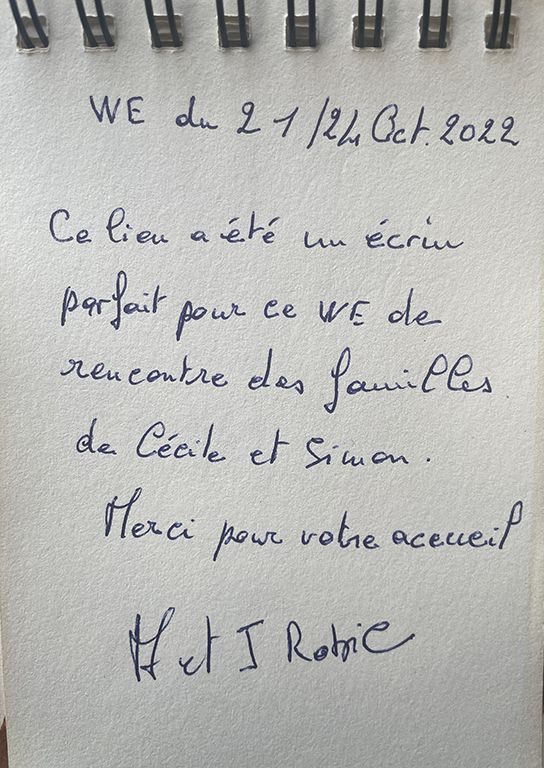 WE du 21/24 Oct. 2022
Ce lieu a été un écrin
parfait pour ce WE de
rencontre des familles
de Cécile et Simon.
Merci pour votre accueil
M et J